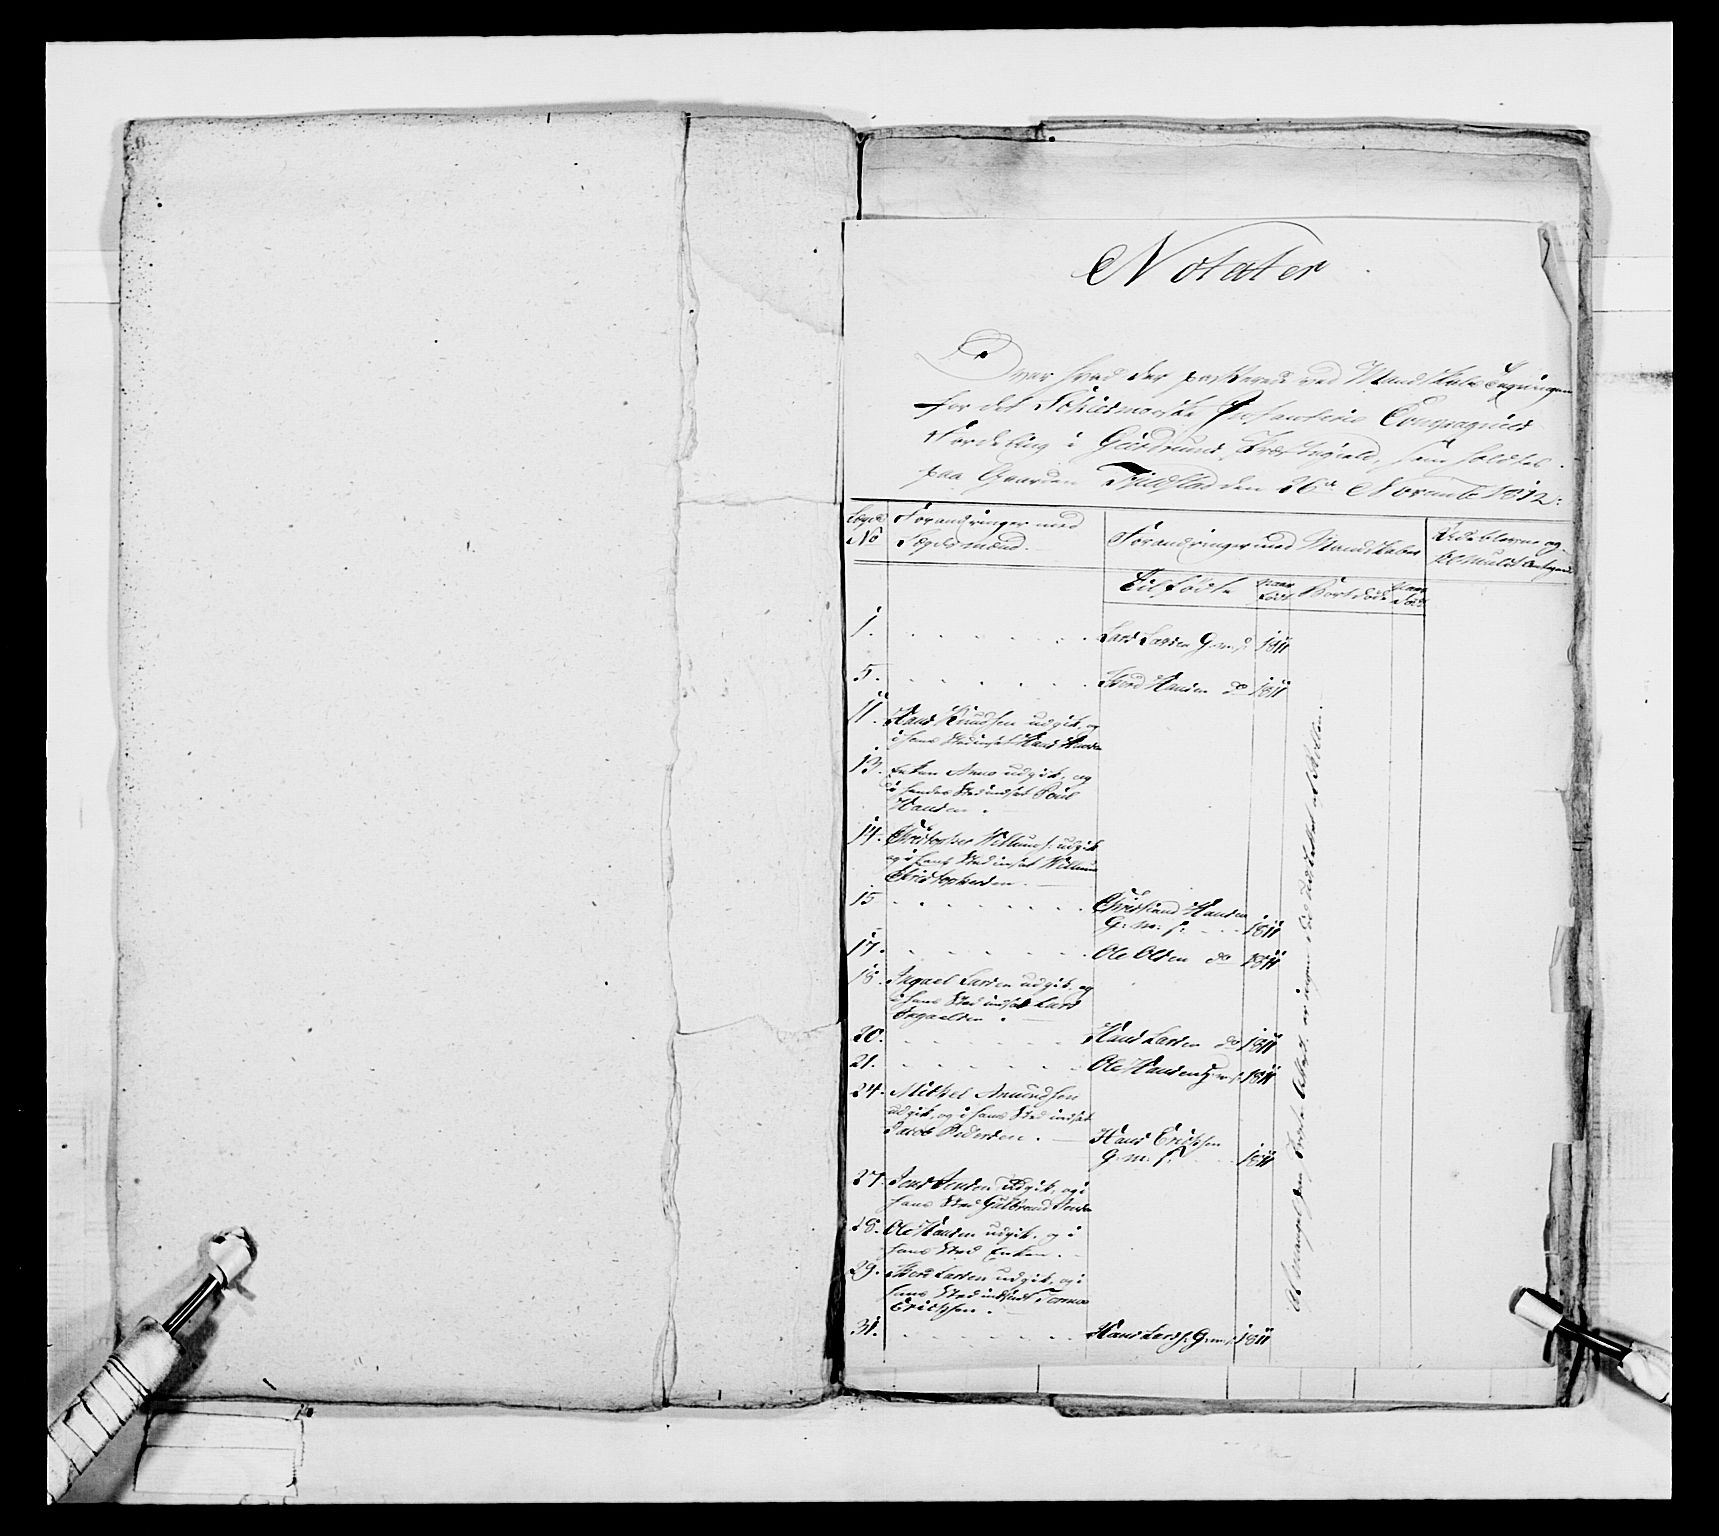 Notater
Over hvad der passerede ved Mandskabs Tegningen
for det Schiedmorske Infanterie Compagnies
Fordeling i Gudbrands Præstegield, som holdtes
paa Gaarden den 26de Novemb 1812:
Lægds No
Forandringer med Lægdsmænd.
Forandringer med Mandskaber
Udeblevne og
Tilfødte
naar født
Bortdøde
naar død
1. Lars Larsen G.m.s. 1811
5. Iver Hansen do 1811
11. Hans Knudsen udgik, og
i hans Sted indsat Hans Hansen
13. Enken Anne udgik, og
i hendes Sted indsat Poul
Hansen.
14. Christopher Willums. udgik
og i hans Sted indsat Willum
Christophersen.
15 Christian Hansen
G: m: s: 1811
17. Ole Olsen do 1811
18. Ingael Larsen udgik, og
i hans Sted indsat Lars
Ingaelsen.
20. Hans Larsen do 1811
21. Ole Hansen G.m.s. 1811
24. Mikkel Amundsen
udgik, og i hans Sted indsat
Jacob Pedersen. Hans Erichsen
G: m: s: 1811
27. Jens Jensen udgik, og i
hans Sted Gulbrand Jensen
28. Ole Hansen udgik, og i
hans Sted Enken.
29. Iver Larsen udgik, og i
hans Sted indsat
Erichsen.
31. Hans Lars: G.m.s. 1811
Af Mangel paa Døde er ingen udslettet af Rollen.